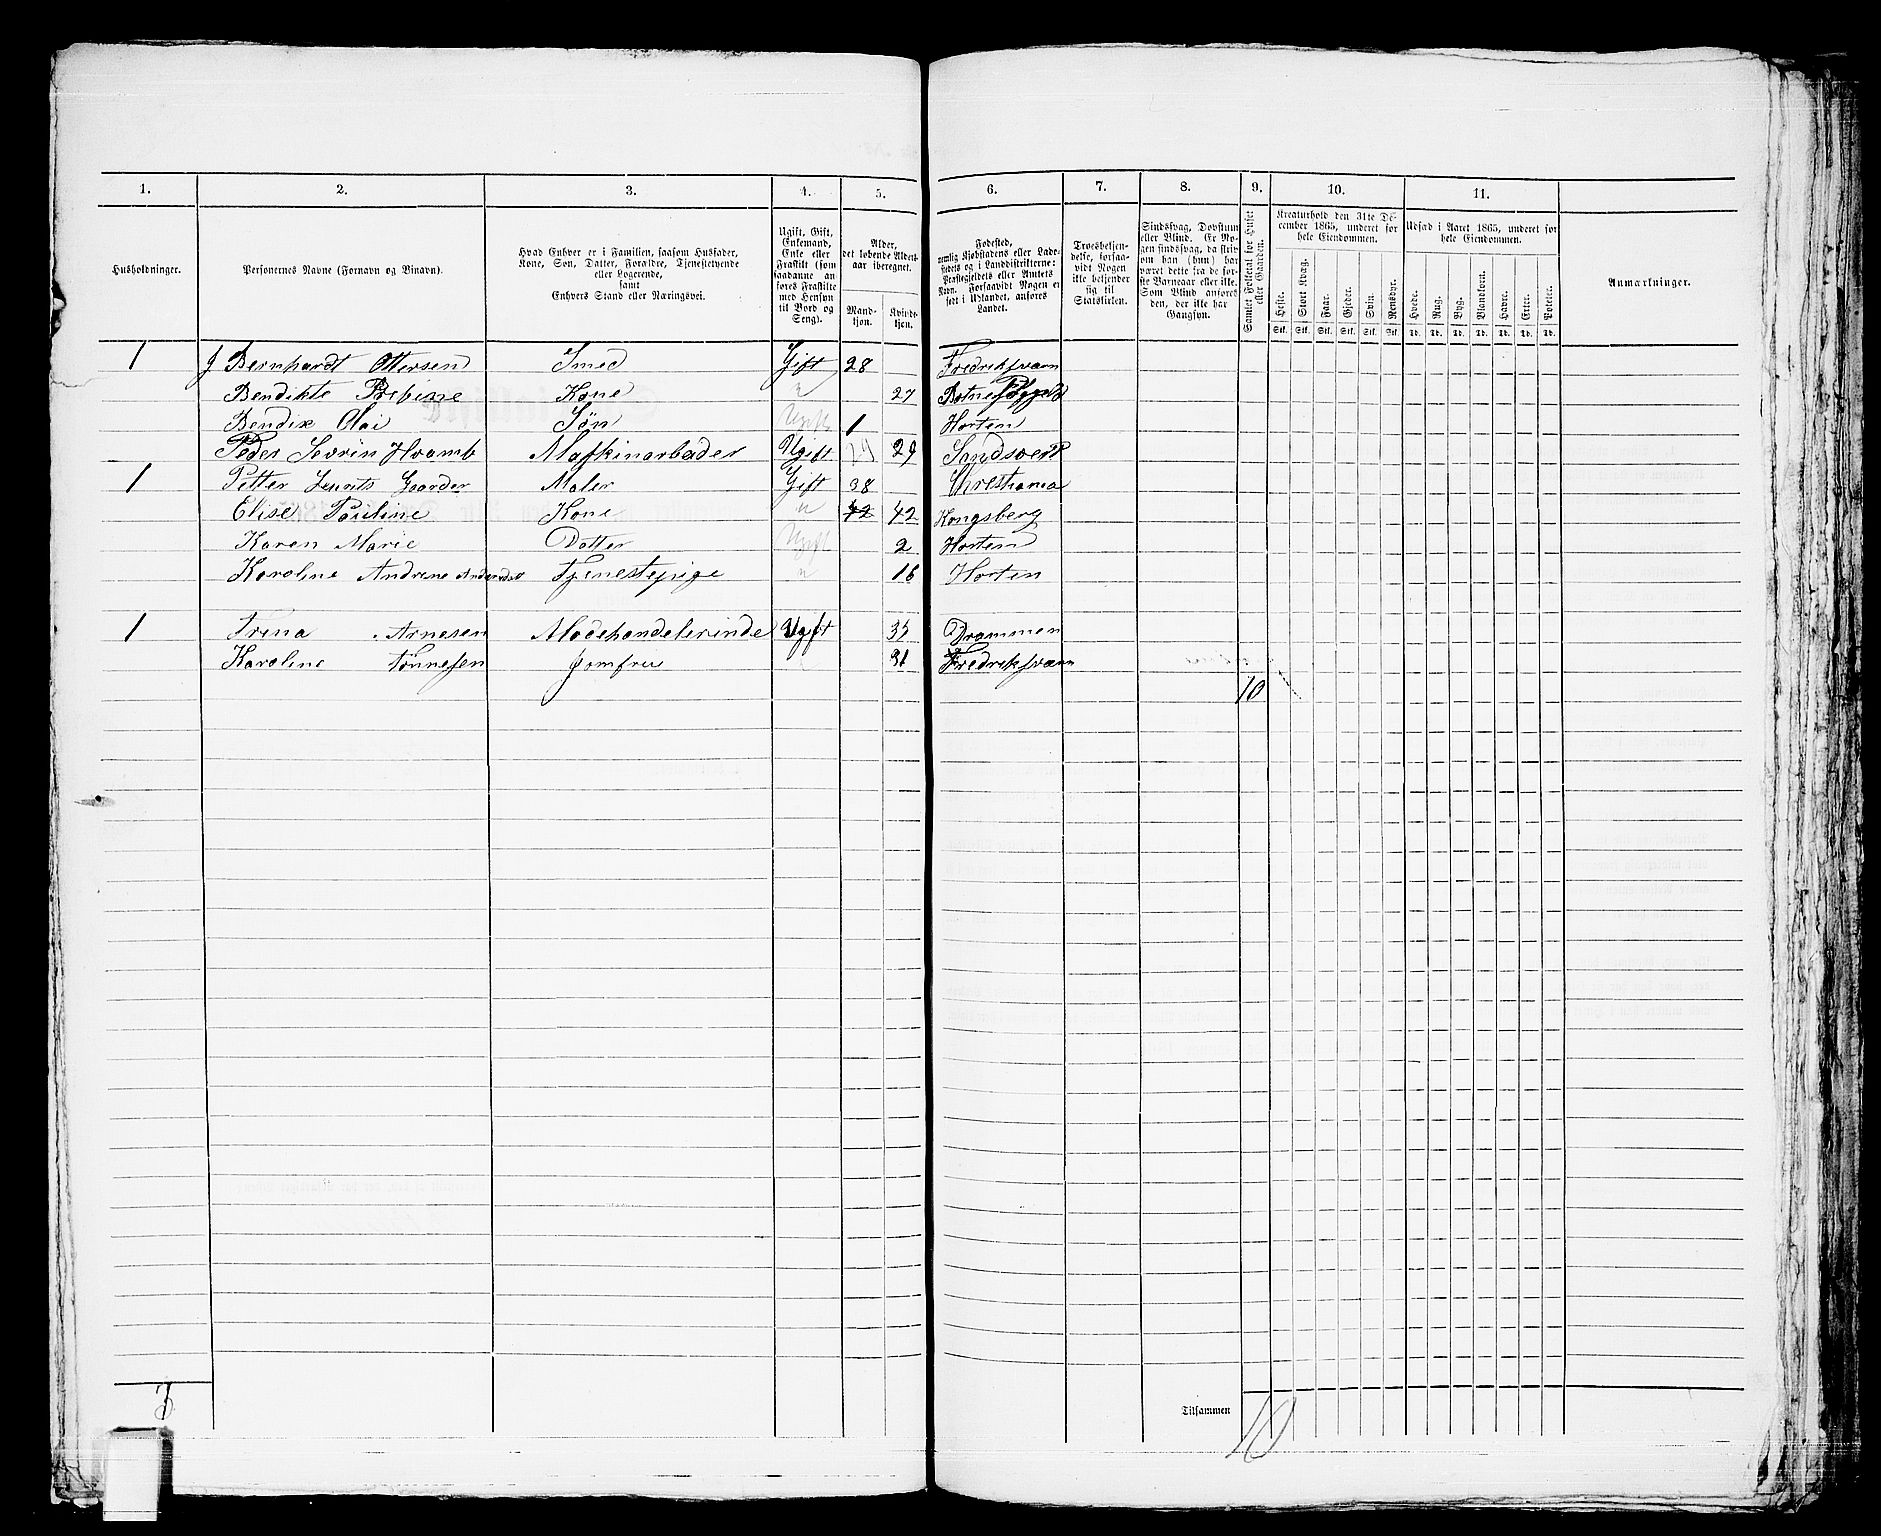 1. 2. 3. 4. 5. 6. 7. 8. 9. 10. 11.
Husholdninger.
Personernes Navne (Fornavn og Binavn).
Hvad Enhver er i Familien, saasom Husfader,
Kone, Søn, Datter, Forældre, Tjenestetyende
eller Logerende,
samt
Enhvers Stand eller Næringsvei.
Ugift, Gift,
Enkemand,
Enke eller
Fraskilt (som
saadanne an-
føres Fraskilte
med Hensyn
til Bord og
Seng).
Alder,
det løbende Alders-
aar iberegnet.
Mand-
kjøn.
Kvinde-
kjøn.
Fødested,
nemlig Kjøbstadens eller Lade-
stedets og i Landdistrikterne:
Præstegjeldets eller Amtets
Navn. Forsaavidt Nogen er
født i Udlandet, anføres
Landet.
Troesbekjen-
delse, forsaa-
vidt Nogen
ikke bekjender
sig til
Statskirken.
Sindssvag, Døvstum
eller Blind. Er No-
gen sindssvag, da skriv
om han (hun) har
været dette fra de før-
ste Barneaar eller ikke.
Som Blind anføres
den, der ikke har
Gangsyn.
Samlet Folketal for Huset
eller Gaarden.
Kreaturhold den 31te De-
cember 1865, underet for
hele Eiendommen.
Heste. Stort Kvæg. Faar. Gjeder. Svin. Rensdyr.
Stk. Stk. Stk. Stk. Stk. Stk.
Udsæd i Aaret 1865, underet for
hele Eiendommen.
Hvede. Rug. Byg. Blandkorn. Havre. Erter. Poteter.
Td. Td. Td. Td. Td. Td. Td.
Anmærkninger.
1 Bernhardt Ottersen Smed Gift 28 Fredriksværn
Bendikte Kone " 27
Bendix Olai Søn Ugift 1 Horten
Peder Sevrin Hvamb Maskinarbader Ugift 29 Sandsvert
1 Petter Lurits Gaarder Maler Gift 38 Christiania
Elise Pauline Kone " 42 42 Kongsberg
Karen Marie Datter Ugift 2 Horten
Karoline Andrene Andersdat Tjenestepige " 16 Horten
1 Trina Arnesen Modehandelerinde Ugift 35 Drammen
Karoline Tønnesen Jomfru 31 Fredriksværn
10
3
Tilsammen 10